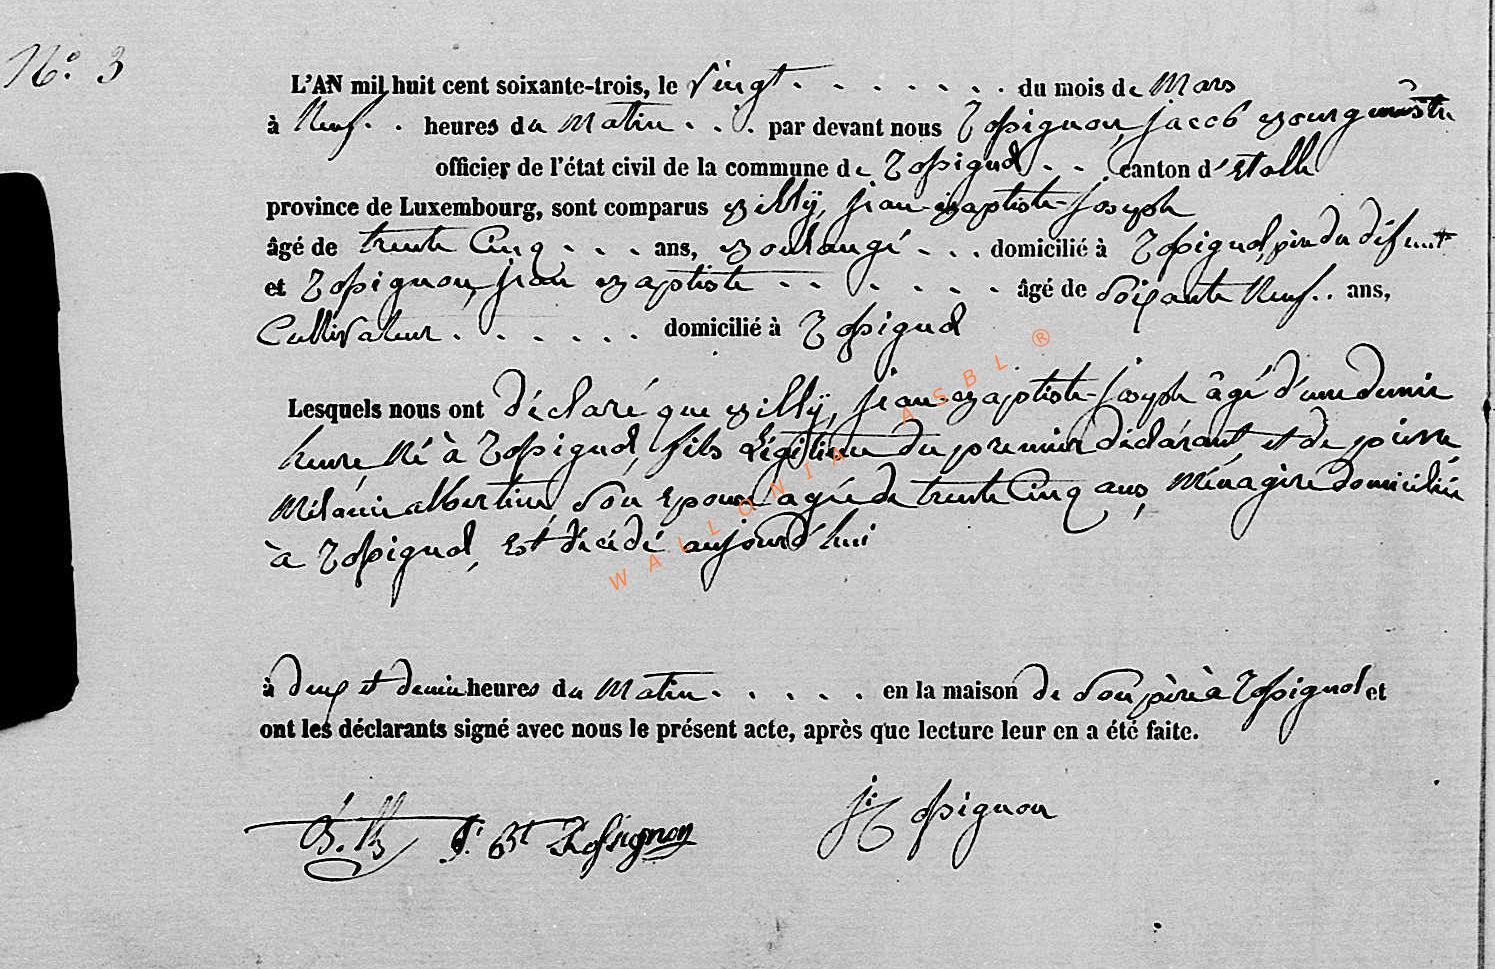 N.º 3
L'AN mil huit cent soixante-trois, le vingt . . . . . . . . du mois de Mars
à Neuf . . heures du Matin . . . par devant nous Rossignon, jacob Bourgmestre
officier de l'état civil de la commune de Rossignol . . canton d'Etalle
province de Luxembourg, sont comparus Billÿ, jean-Baptiste-joseph
âgé de trente Cinq . . . ans, Boulangé . . . domicilié à Rossignol, père du défunt
et Rossignon, jean Baptiste . . . . . . . âgé de Soixante Neuf . . ans,
Cultivateur . . . . . . domicilié à Rossignol
Lesquels nous ont déclaré que Billÿ, jean-Baptiste-joseph âgé d'une demie
heure Né à Rossignol, fils Légitime du premier déclarant et de pierre
Mélanie albertine, Son Epouse agée de trente Cinq ans, Ménagère domiciliée
à Rossignol, Est décédé aujourd'hui
à deux et demie heures du Matin . . . . . en la maison de Son père à Rossignol et
ont les déclarants signé avec nous le présent acte, après que lecture leur en a été faite.
J. Bt Rossignon
j: Rossignon
WALLONIA ASBL ®